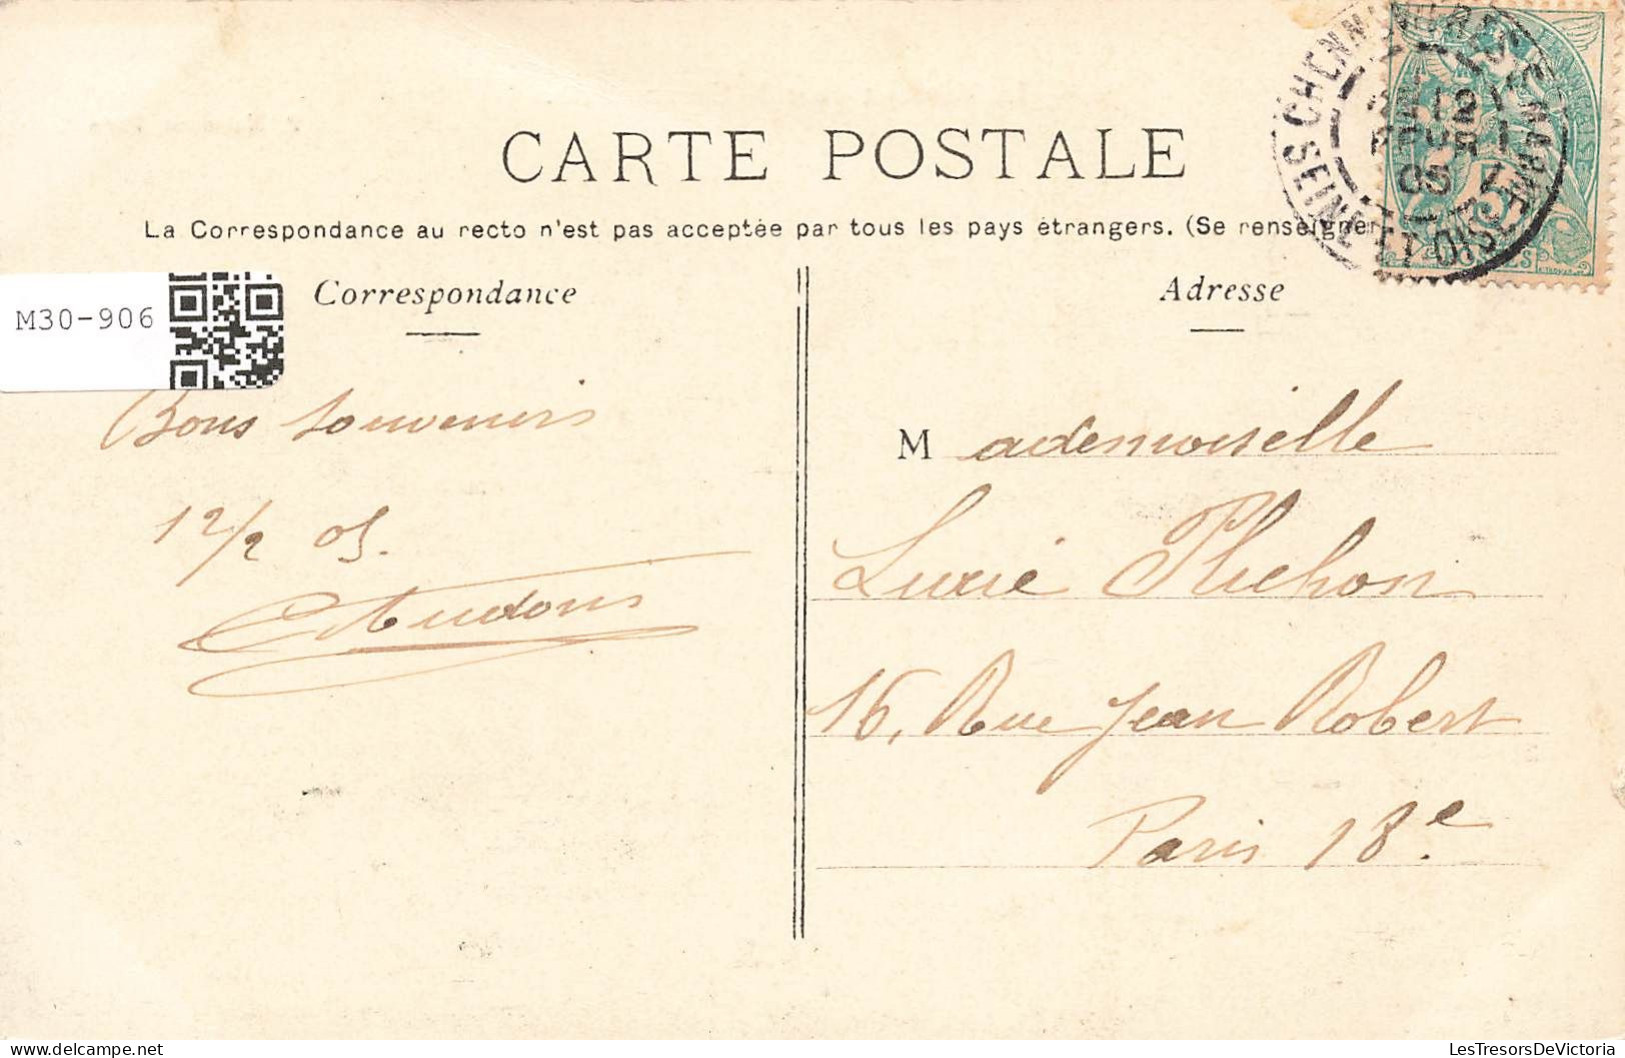 CARTE POSTALE
La Correspondance au recto n'est pas acceptée par tous les pays étrangers. (Se renseigner
M30-906
Correspondance
Bons souvenirs
12/2 05.
Adresse
Mademoiselle
Lucie Plichon
16, Rue Jean Robert
Paris 18.e
CHENN
SEINE-ET-OISE
12
FEVR
05
POSTES
LesTresorsDeVictoria